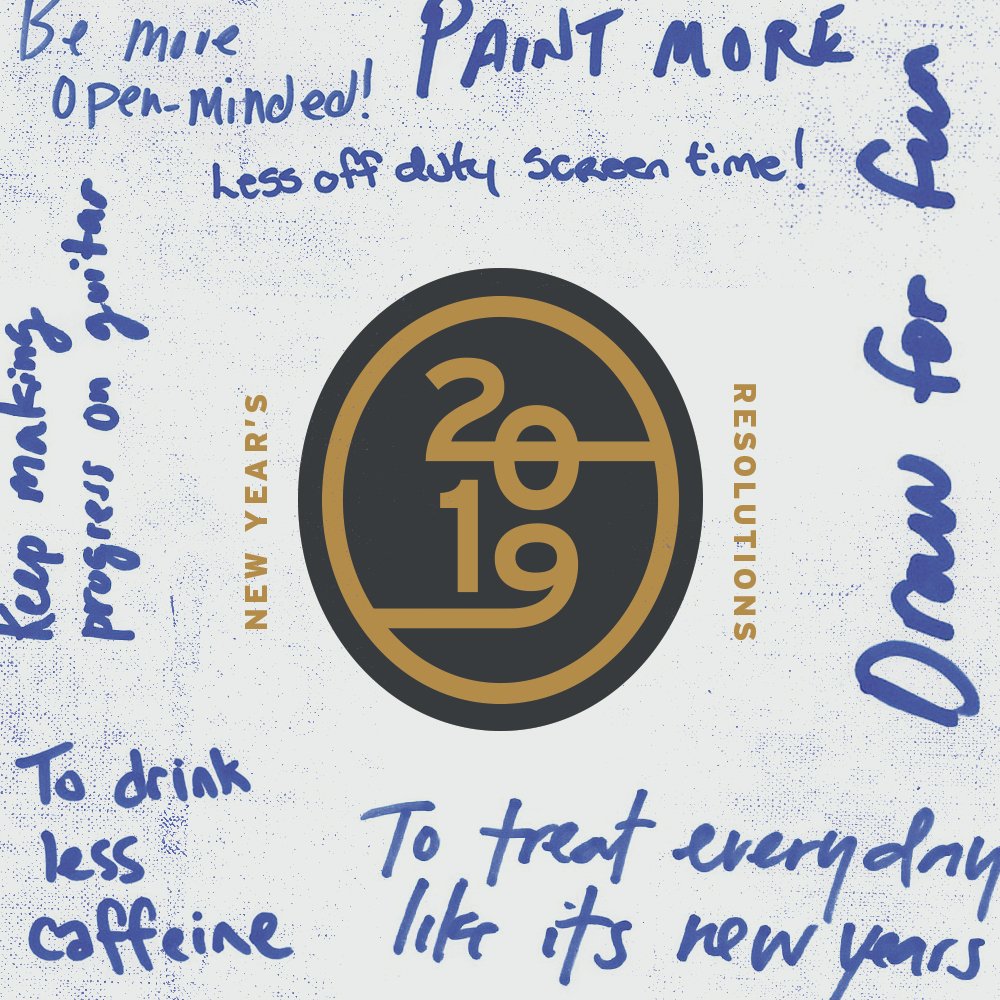 Be more
open-minded!
PAINT MORE
Less off duty screen time!
Keep making
progress on guitar
Draw for fun
NEW YEAR'S
20
19
RESOLUTIONS
To drink
less
caffeine
To treat everyday
like it's new years